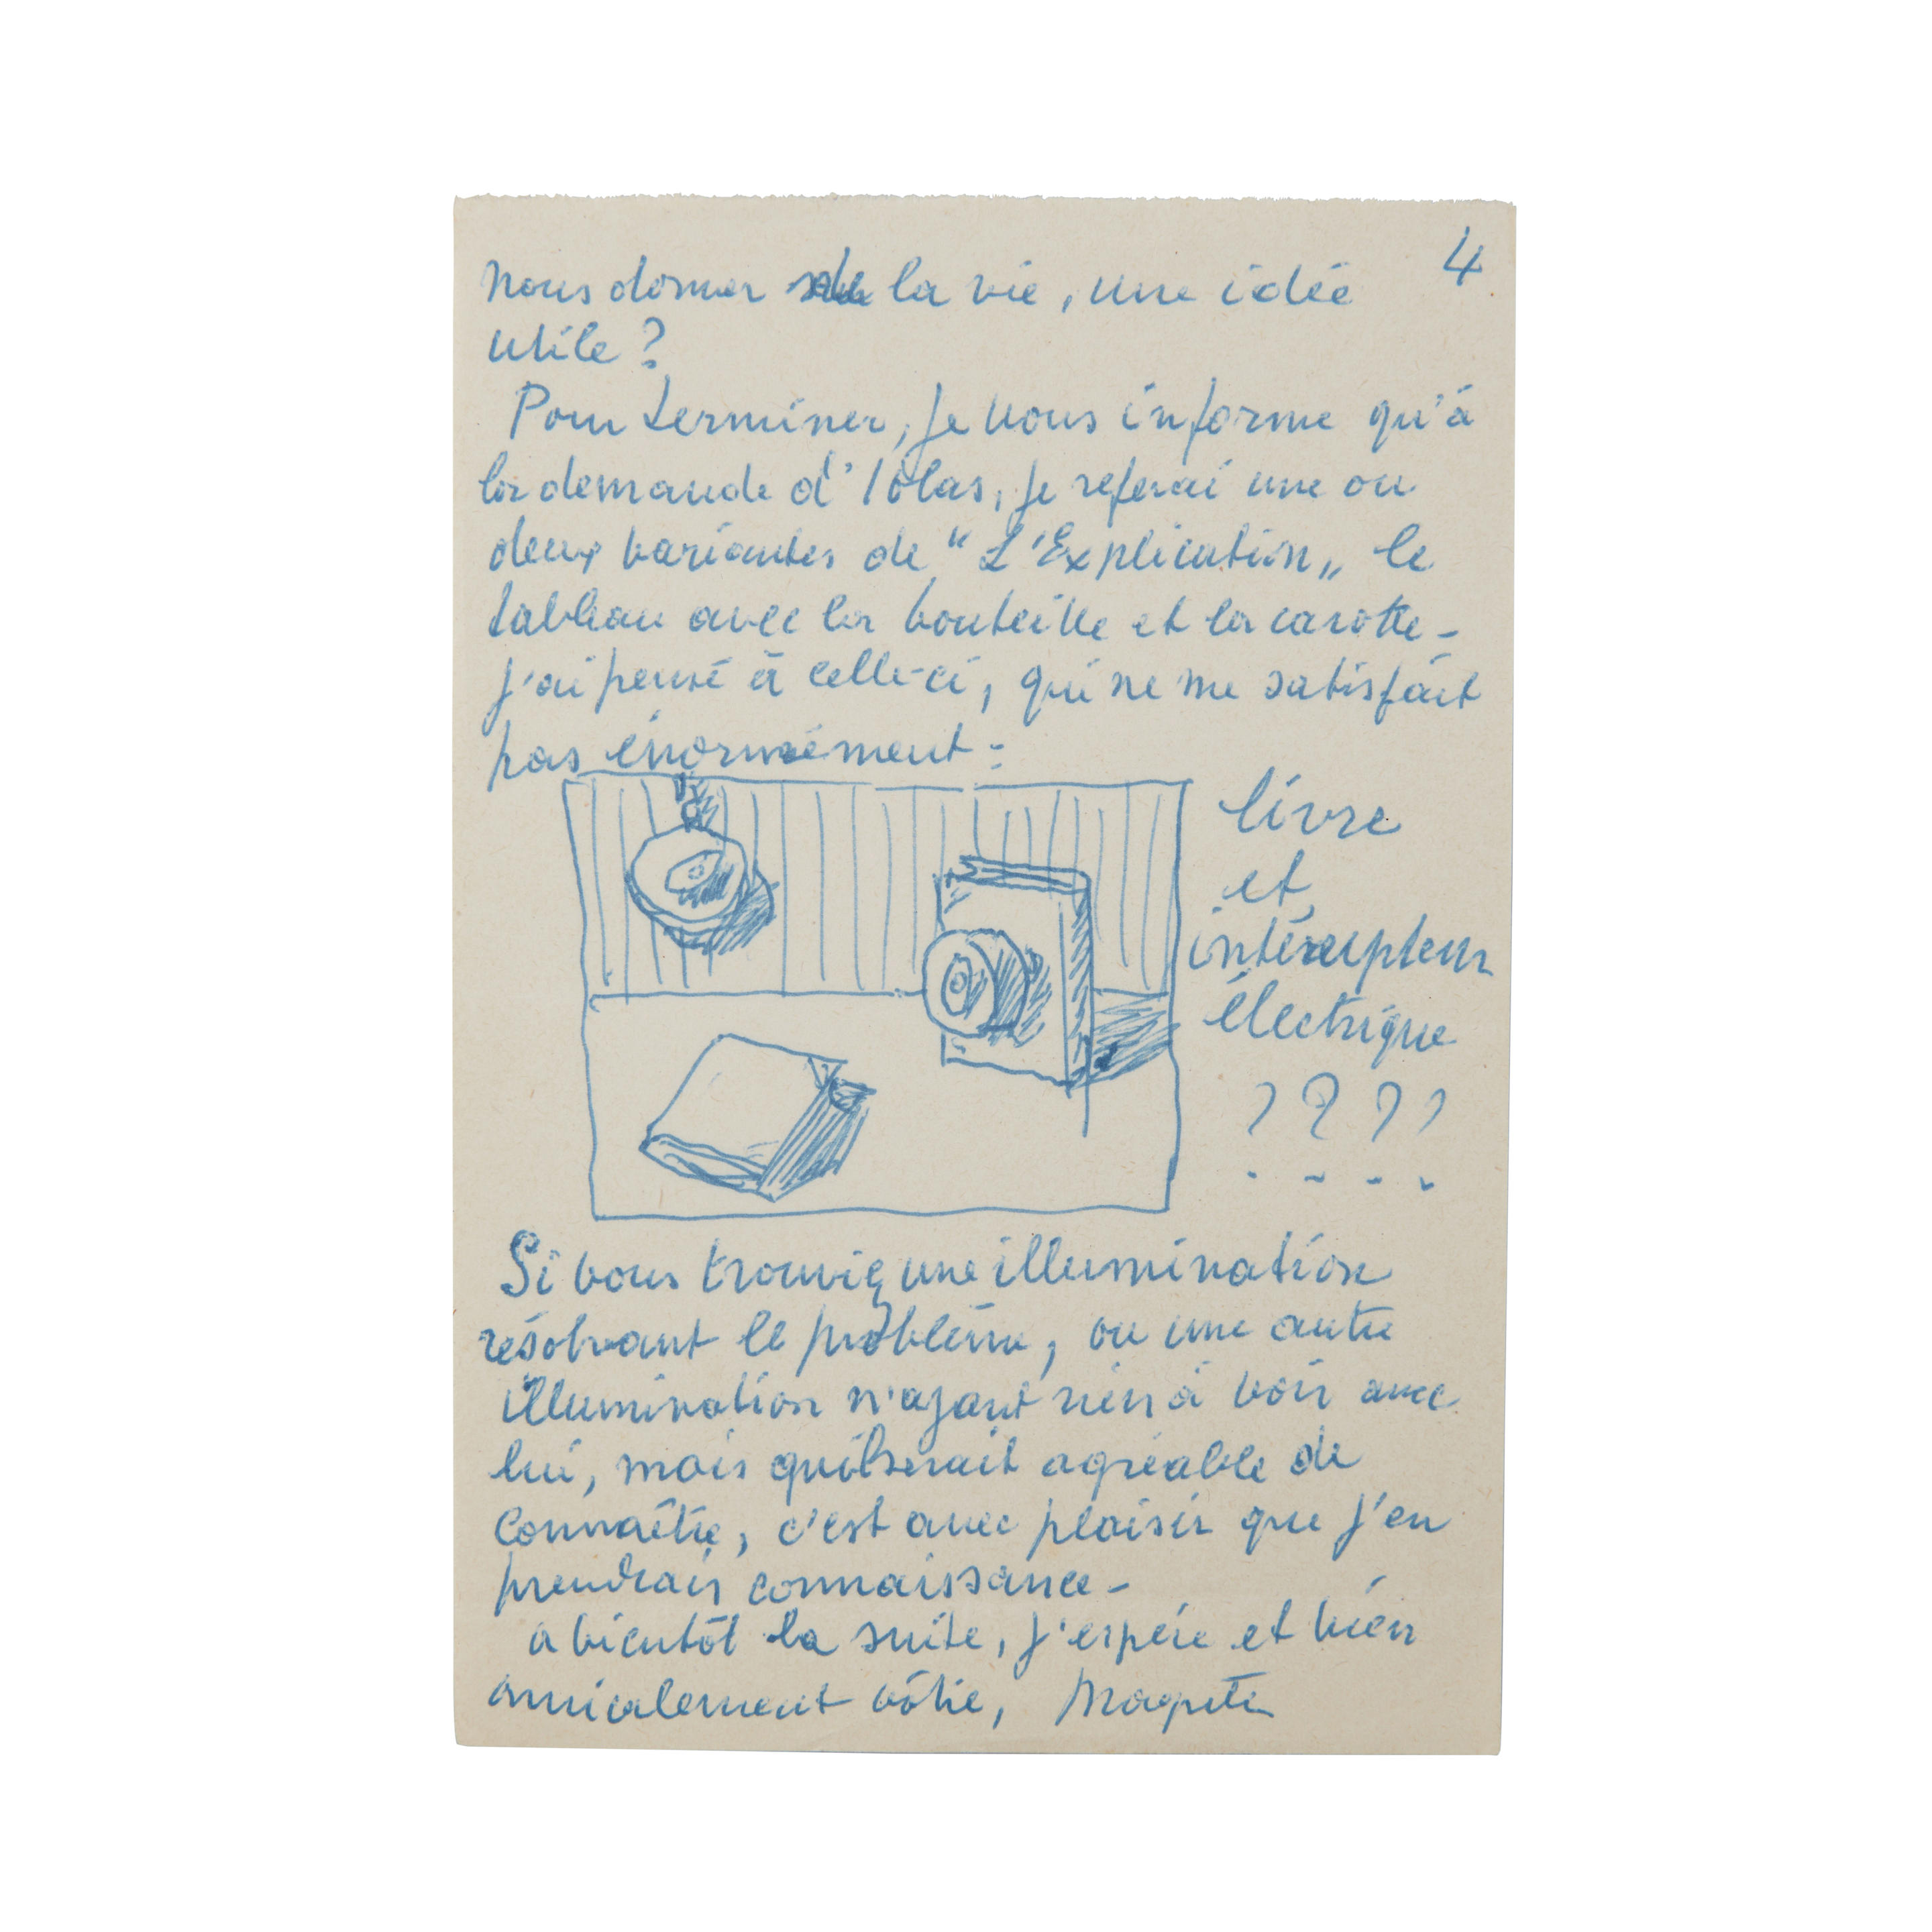 4
nous donner de la vie, une idée
utile ?
Pour terminer, je vous informe qu'à
la demande d'Iolas, je referai une ou
deux variantes de "L'Explication„ le
tableau avec la bouteille et la carotte –
j'ai pensé à celle-ci, qui ne me satisfait
pas énormément :
livre
et
interrupteur
électrique
? ? ? ?
Si vous trouviez une illumination
résolvant le problème, ou une autre
illumination n'ayant rien à voir avec
lui, mais qu'il serait agréable de
connaître, c'est avec plaisir que j'en
prendrais connaissance –
a bientôt la suite, j'espère et bien
amicalement vôtre, Magritte